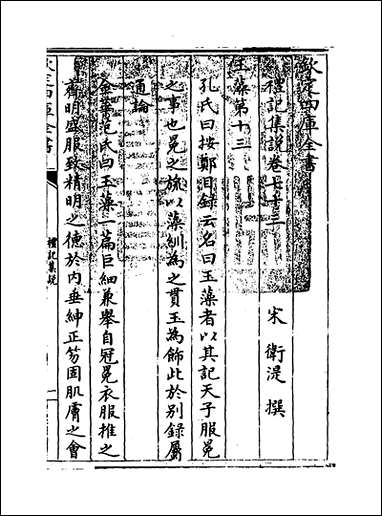 欽定四庫全書
禮記集說卷七十三
宋 衛湜 撰
玉藻第十三
孔氏曰按鄭目録云名曰玉藻者以其記天子服冕
之事也冕之旒以藻紃為之貫玉為飾此於別錄屬
通論
金華范氏曰玉藻一篇巨細兼舉自冠冕衣服推之
齊明盛服致精明之德於内垂紳正笏固肌膚之會
欽定四庫全書
禮記集說
一